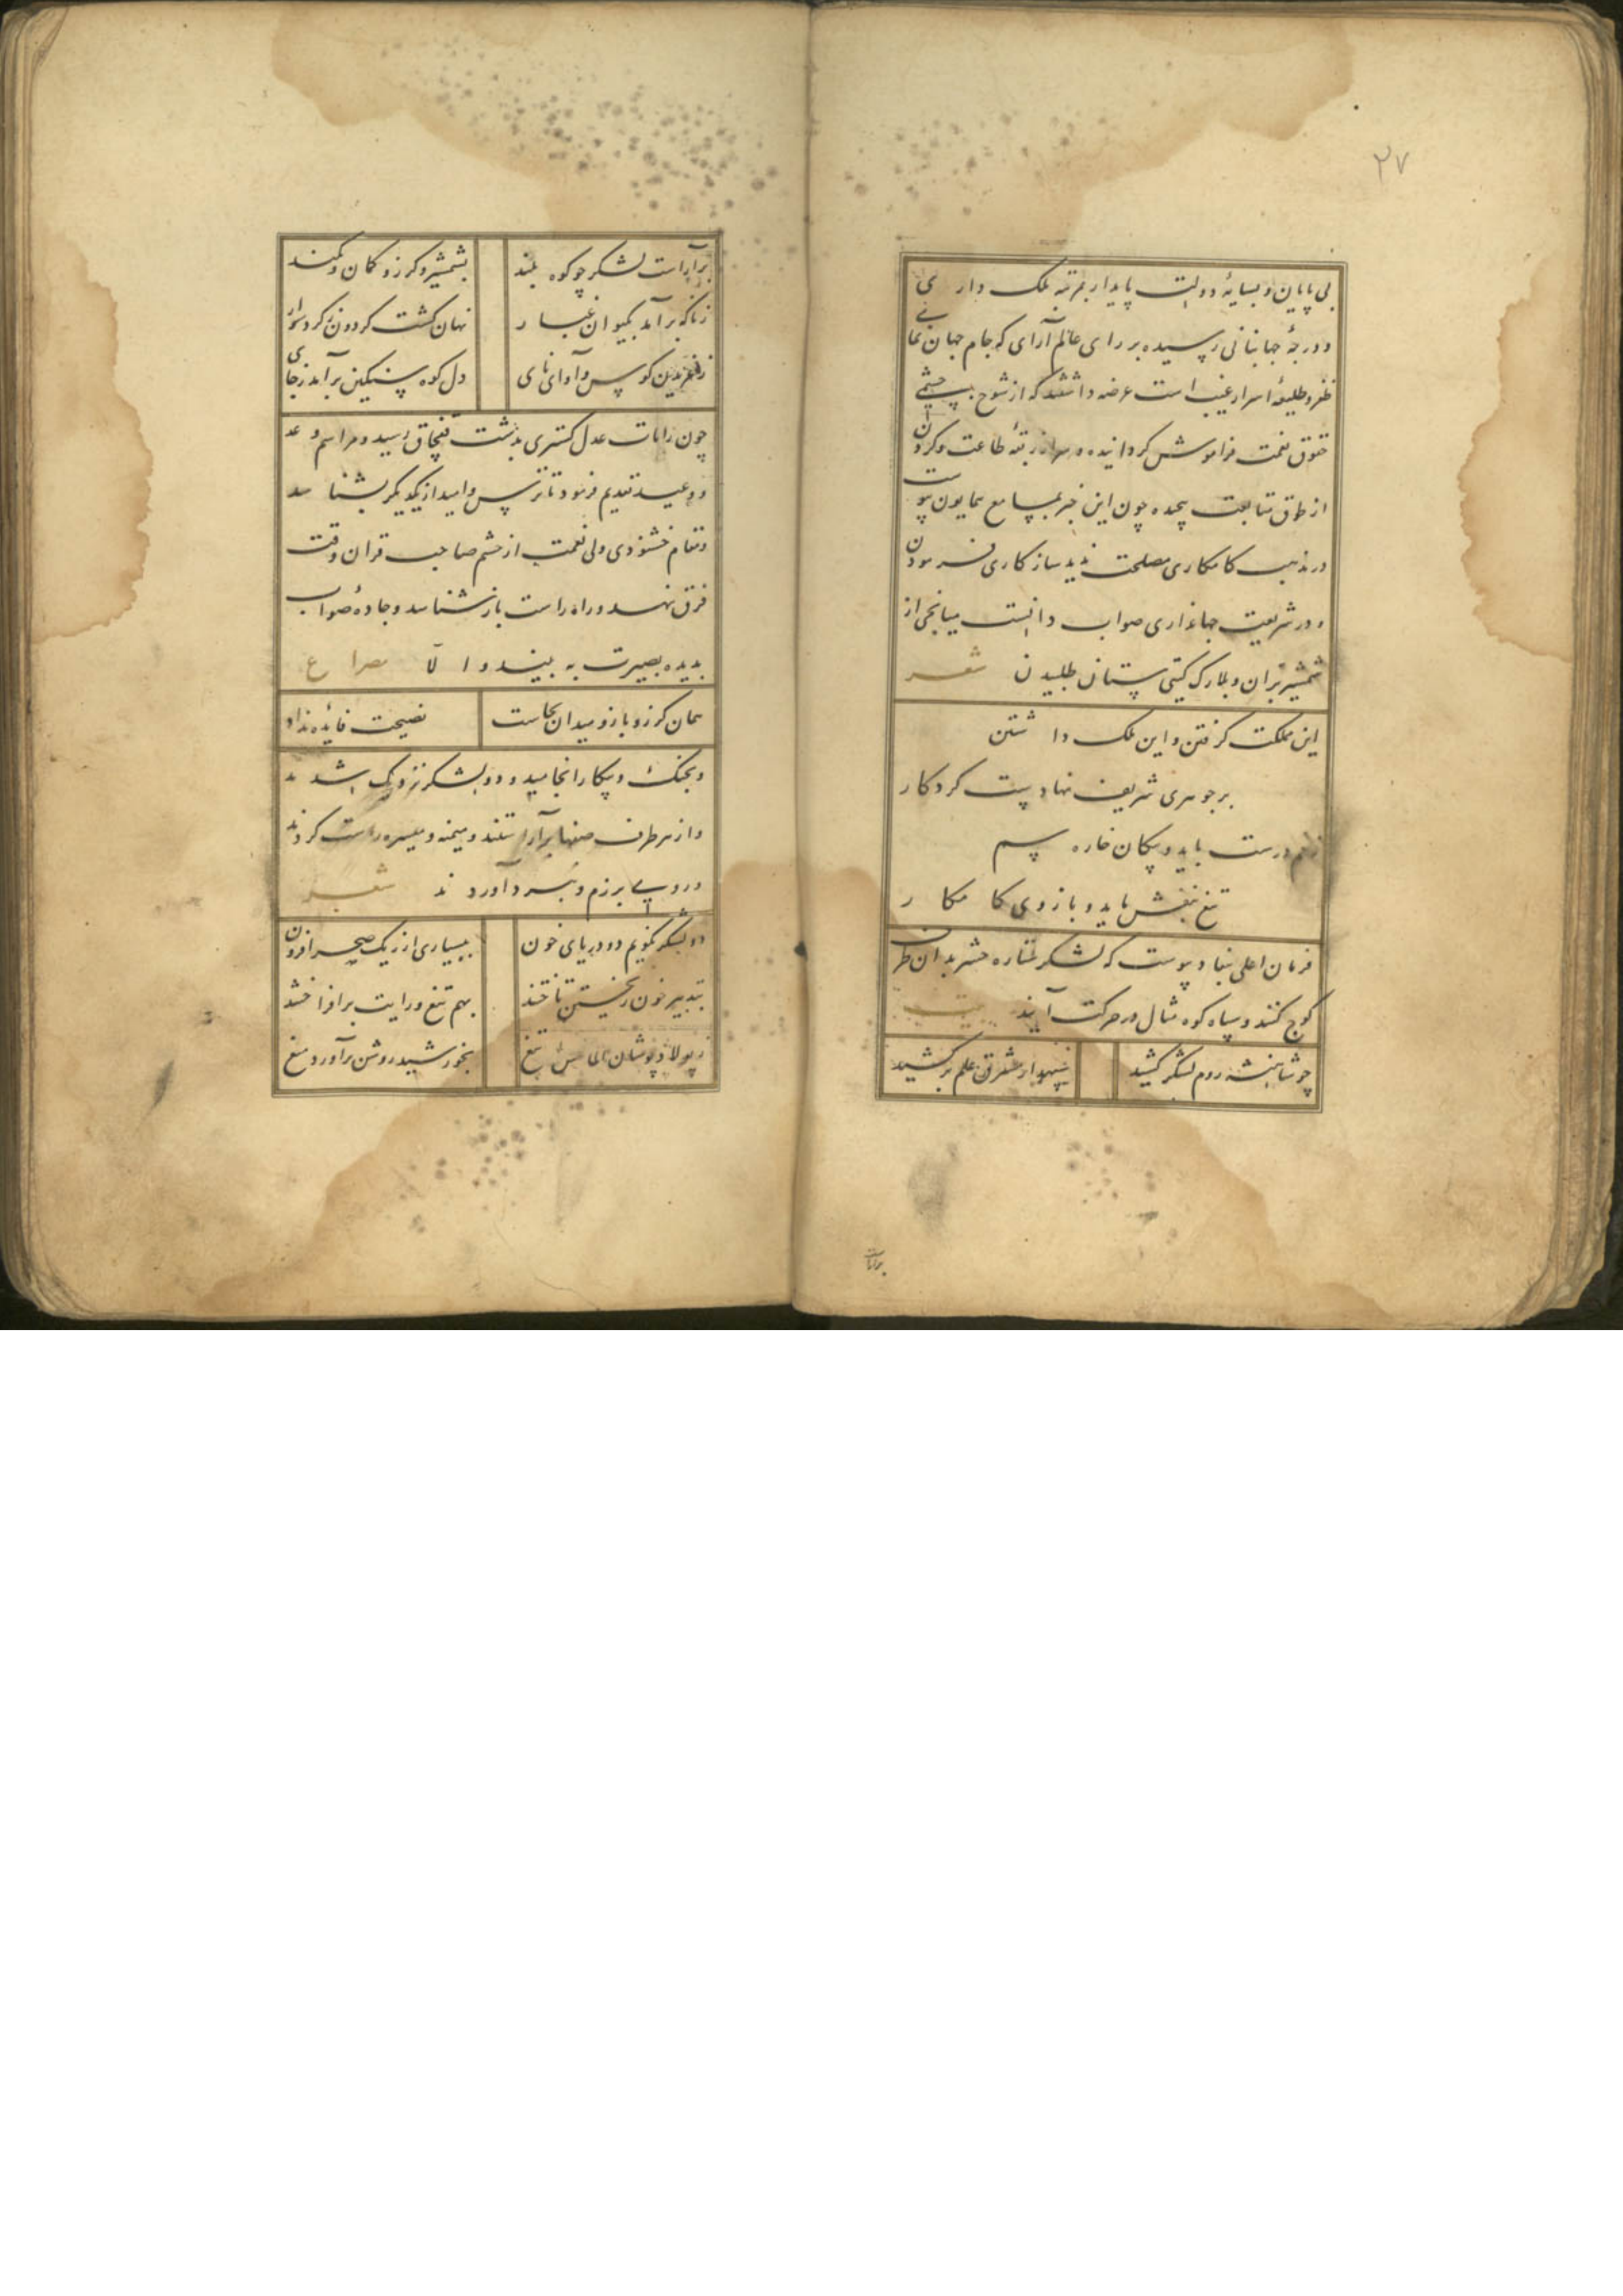 ۲۷
بی پایان و بسایهٔ دولت پایدار بمرتبه ملک داری
و درجهٔ جهانبانی رسیده بر رای عالم آرای که جام جهان نمای
ظفر و طلیعهٔ اسرار غیب است عرضه داشتند که از شوخ چشمی
حقوق نعمت فراموش کردانیده و سر از ربقهٔ طاعت و کردن
از طوق متابعت پیچیده چون این خبر بمسامع همایون پیوست
در مذهب کامکاری مصلحت ندید سازکاری فرمودن
و در شریعت جهانداری صواب دانست میانجی از
شمشیر بران و بلارک کیتی ستان طلبیدن شعر
این مملکت کرفتن و این ملک داشتن
بر جوهری شریف نهادست کردکار
درست باید و پیکان خاره سم
تیغ بنفش باید و بازوی کامکار
فرمان اعلی بنفاد پیوست که لشکر ستاره حشر بدان طرف
کوچ کنند و سپاه کوه مثال در حرکت آیند بیت
چو شاهنشه روم لشکر کشید
سپهدار مشرق علم بر کشید
برآراست
برآراست لشکر چو کوه بلند
بشمشیر و کرز و کمان و کمند
زناکه برآمد بکیوان غبار
نهان کشت کردون ز کرد سوار
ز غریدن کوس و آوای نای
دل کوه سنکین برآمد ز جای
چون رایات عدل کستری بدشت قفچاق رسید و مراسم وعد
و وعید تقدیم فرمود تا ترس و امید از یکدیکر بشناسد
و مقام خشنودی ولی نعمت از خشم صاحب قران وقت
فرق نهد و راه راست باز شناسد و جادهٔ صواب
بدیده بصیرت به بیند و الا مصراع
همان کرز و بازو میدان بجاست
نصیحت فائده نداد
و بجنک و پیکار انجامید و دو لشکر نزدیک شدند
و از هر طرف صفها برآراستند و میمنه و میسره راست کردند
و روی برزم و نبرد آوردند شعر
دو لشکر نکویم دو دریای خون
ببسیاری از ریک صحرا فزون
بتدبیر خون ریختن تاختند
بهم تیغ و رایت برافراختند
ز پولاد پوشان الماس تیغ
بخورشید روشن برآورد میغ